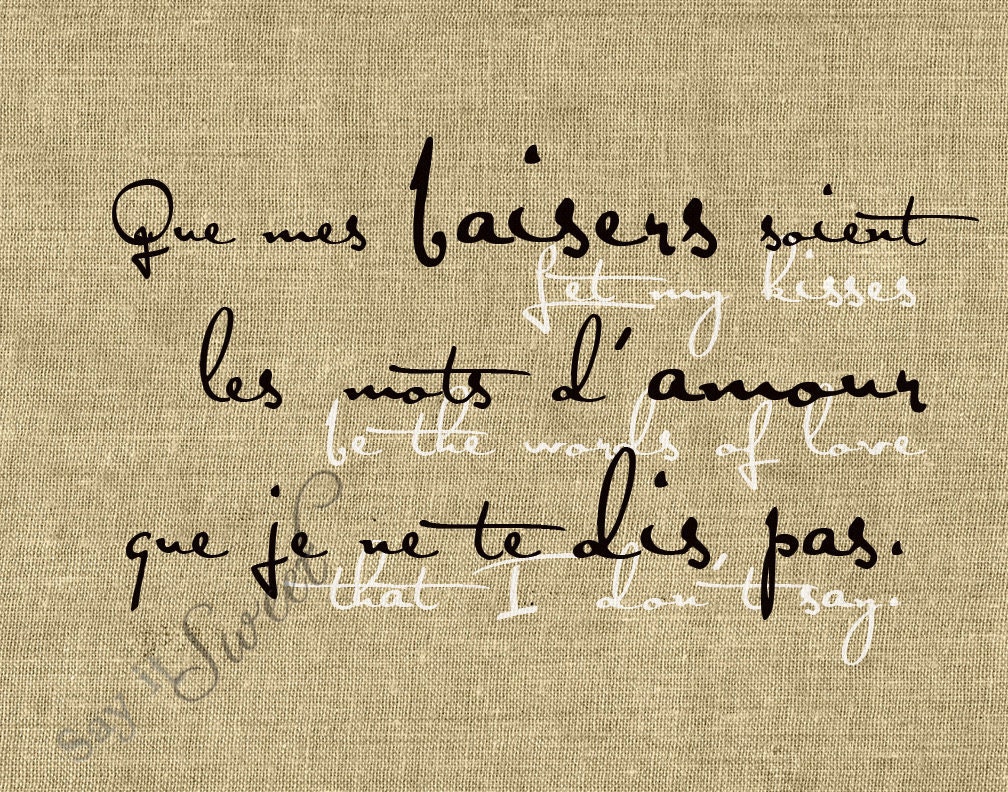 Que mes baisers soient
let my kisses
les mots d'amour
be the words of love
que je ne te dis pas.
that I don't say.
say it Sweet